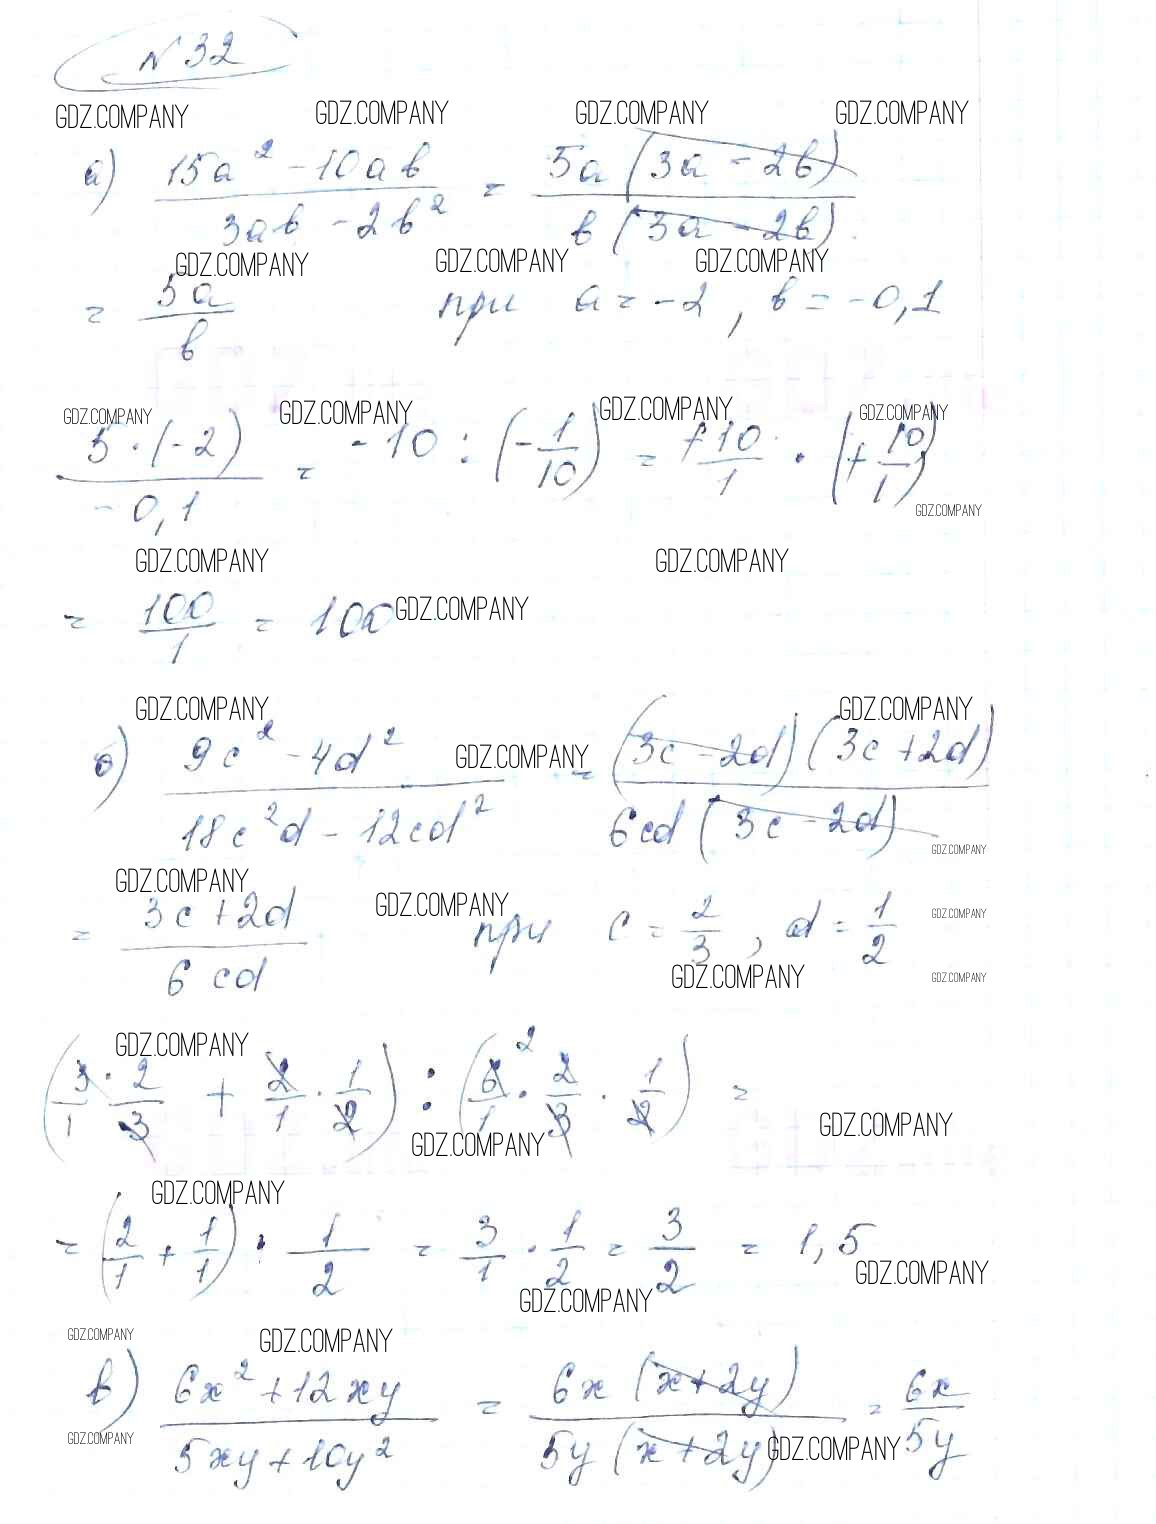 № 32
GDZ.COMPANY GDZ.COMPANY GDZ.COMPANY GDZ.COMPANY
а) (15a² - 10ab)/(3ab - 2b²) = (5a(3a - 2b))/(b(3a - 2b))
GDZ.COMPANY GDZ.COMPANY GDZ.COMPANY
= 5a/b при a = -2, b = -0,1
GDZ.COMPANY GDZ.COMPANY GDZ.COMPANY GDZ.COMPANY
(5·(-2))/(-0,1) = -10 : (-1/10) = +10/1 · (+10/1)
GDZ.COMPANY
GDZ.COMPANY GDZ.COMPANY
= 100/1 = 100 GDZ.COMPANY
GDZ.COMPANY GDZ.COMPANY
б) (9c² - 4d²)/(18c²d - 12cd²) GDZ.COMPANY = ((3c - 2d)(3c + 2d))/(6cd(3c - 2d))
GDZ.COMPANY
GDZ.COMPANY GDZ.COMPANY GDZ.COMPANY
= (3c + 2d)/(6cd) при c = 2/3, d = 1/2
GDZ.COMPANY GDZ.COMPANY
GDZ.COMPANY
(3/1 · 2/3 + 2/1 · 1/2) : (6/1 ² · 2/3 · 1/2) =
GDZ.COMPANY GDZ.COMPANY
GDZ.COMPANY
= (2/1 + 1/1) · 1/2 = 3/1 · 1/2 = 3/2 = 1,5
GDZ.COMPANY GDZ.COMPANY
GDZ.COMPANY GDZ.COMPANY
в) (6x² + 12xy)/(5xy + 10y²) = (6x(x + 2y))/(5y(x + 2y)) = 6x/5y
GDZ.COMPANY GDZ.COMPANY